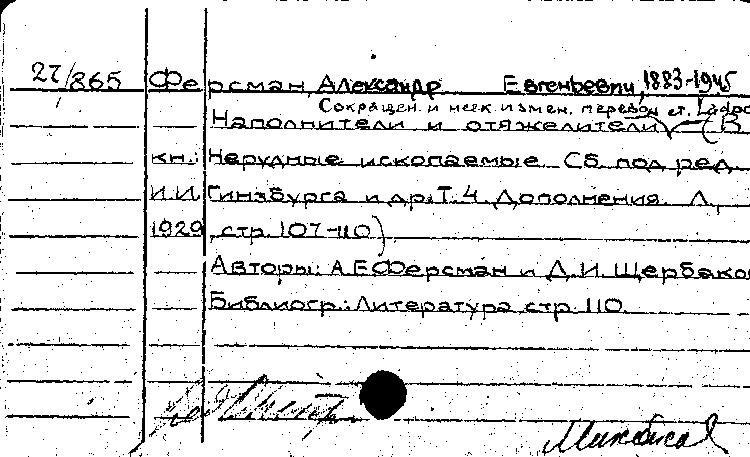 27/865 Ферсман, Александр Евгеньевич, 1883-1945
Сокращен. и неск. измен. перевод ст.
Наполнители и отяжелители) — (В
кн.: Нерудные ископаемые. Сб. под ред.
И.И. Гинзбурга и др. Т. 4. Дополнения. Л.,
1929, стр. 107-110)
Авторы: А.Е. Ферсман и Д.И. Щербаков
Библиогр.: Литература стр. 110